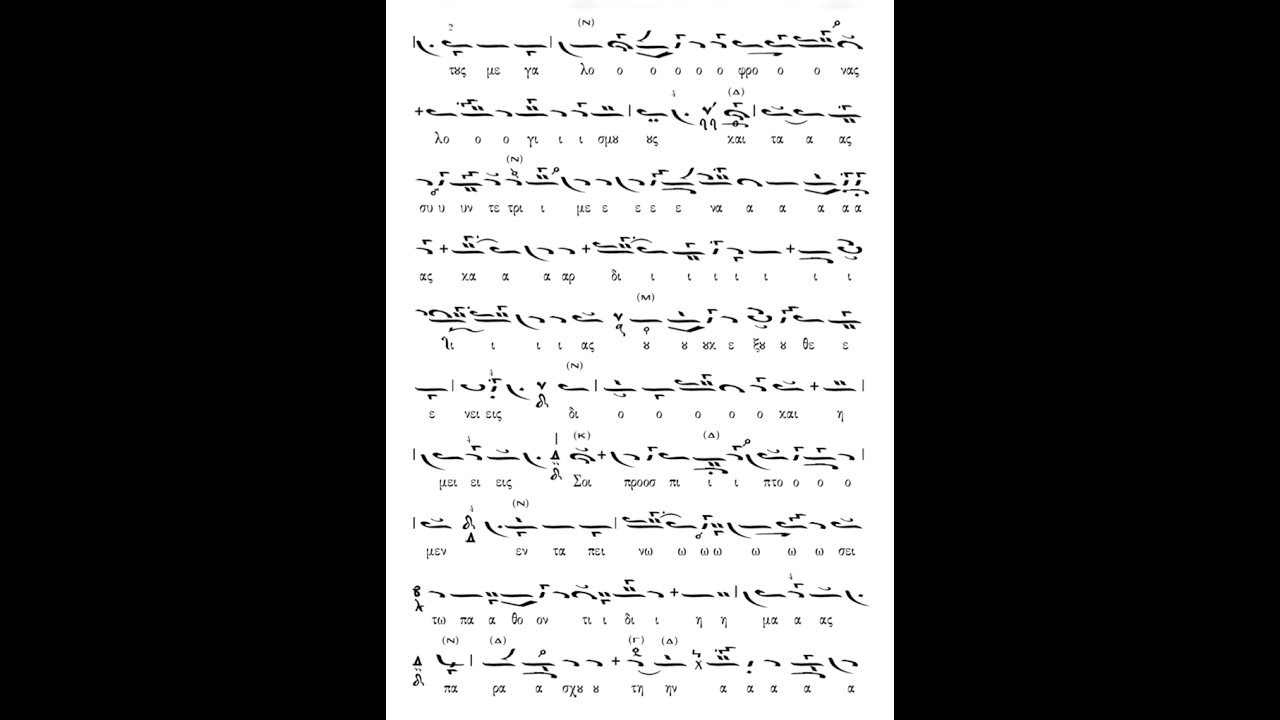 τȣς με γα λο ο ο ο ο ο φρο ο ο νας
λο ο ο γι ι ι σμȣ ȣς και τα α ας
συ υ υν τε τρι ι με ε ε ε ε να α α α α α α
ας κα α α αρ δι ι ι ι ι ι ι ι
λι ι ι ι ας ȣ ȣ ȣκ ε ξȣ ȣ θε ε
ε νει εις δι ο ο ο ο ο και η
μει ει εις Σοι προοσ πι ι ι πτο ο ο ο
μεν εν τα πει νω ω ω ω ω ω ω σει
τω πα α θο ον τι ι δι ι η η μα α ας
πα ρα α σχȣ ȣ τη ην α α α α α